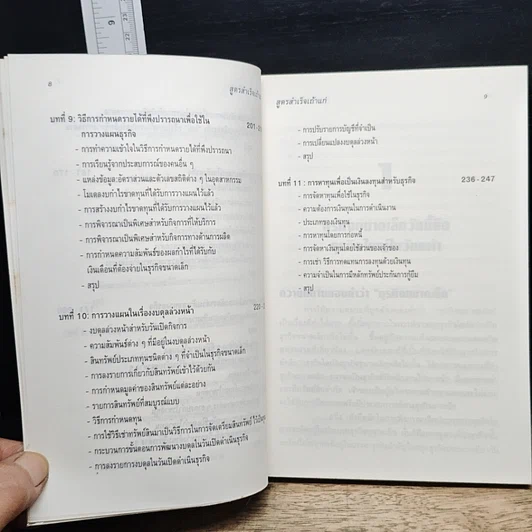 6
8
สูตรสำเร็จเถ้าแก่
บทที่ 9: วิธีการกำหนดรายได้ที่พึงปรารถนาเพื่อใช้ใน
การวางแผนธุรกิจ
- การทำความเข้าใจในวิธีการกำหนดรายได้ที่พึงปรารถนา
- การเรียนรู้จากประสบการณ์ของคนอื่น ๆ
- แหล่งข้อมูล:อัตราส่วนและตัวเลขสถิติต่าง ๆ ในอุตสาหกรรม
- โมเดลงบกำไรขาดทุนที่ได้รับการวางแผนไว้แล้ว
- การสร้างงบกำไรขาดทุนที่ได้รับการวางแผนไว้แล้ว
- การพิจารณาเป็นพิเศษสำหรับกิจการที่ให้บริการ
- การพิจารณาเป็นพิเศษสำหรับกิจการทางด้านการผลิต
- การกำหนดความสัมพันธ์ของผลกำไรที่ได้รับกับ
เงินเดือนที่ต้องจ่ายในธุรกิจขนาดเล็ก
- สรุป
บทที่ 10: การวางแผนในเรื่องงบดุลล่วงหน้า
- งบดุลล่วงหน้าสำหรับวันเปิดกิจการ
- ความสัมพันธ์ต่าง ๆ ที่มีอยู่ในงบดุลล่วงหน้า
- สินทรัพย์ประเภททุนชนิดต่าง ๆ ที่จำเป็นในธุรกิจขนาดเล็ก
- การลงรายการเกี่ยวกับสินทรัพย์เข้าไว้ด้วยกัน
- การกำหนดมูลค่าของสินทรัพย์แต่ละอย่าง
- รายการสินทรัพย์ที่สมบูรณ์แบบ
- วิธีการกำหนดทุน
- การใช้วิธีเช่าทรัพย์สินมาเป็นวิธีการในการจัดเตรียมสินทรัพย์
- กระบวนการขั้นตอนการพัฒนางบดุลในวันเปิดดำเนินธุรกิจ
- การลงรายการงบดุลในวันเปิดดำเนินธุรกิจ
สูตรสำเร็จเถ้าแก่
9
- การปรับรายการบัญชีที่จำเป็น
- การเปลี่ยนแปลงงบดุลล่วงหน้า
- สรุป
บทที่ 11 : การหาทุนเพื่อเป็นเงินลงทุนสำหรับธุรกิจ 236 - 247
- การจัดหาทุนเพื่อใช้ในธุรกิจ
- ความต้องการเงินทุนในการดำเนินงาน
- ประเภทของเงินทุน
- การหาทุนโดยการก่อหนี้
- การจัดหาเงินทุนโดยใช้ส่วนของเจ้าของ
- การเช่า วิธีการทดแทนการลงทุนด้วยเงินทุน
- ความจำเป็นในการมีหลักทรัพย์ประกันการกู้ยืม
- สรุป